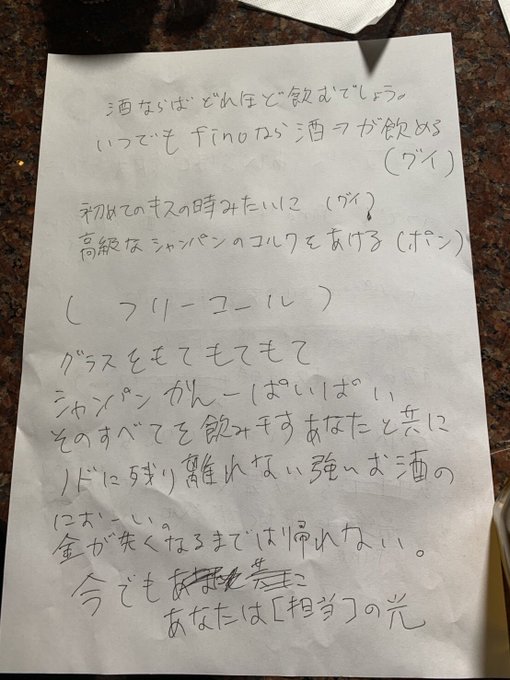 酒ならばどれほど飲むでしょう。
いつでもfinoなら酒が飲める
(グイ)
初めてのキスの時みたいに (グイ)
高級なシャンパンのコルクをあける(ポン)
( フリーコール )
グラスをもてもてもて
シャンパンかんーぱいぱい
そのすべてを飲み干すあなたと共に
ノドに残り離れない強いお酒の
におーい。
金が失くなるまでは帰れない。
今でも
あなたは[担当]の光